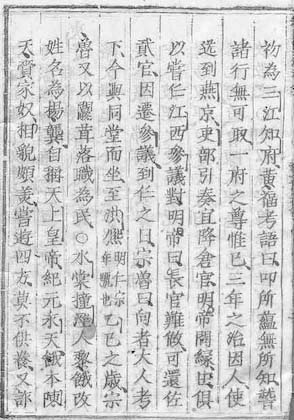 初為三江知府黃福考語曰叩所蘊無所知聲
諸行無可取一府之尊惟已三年之治因人使
迯到燕京吏部引奏宜降倉官明帝問緣由俱
以嘗仁江西參議對明帝曰長官難做可還佐
貳官因遷參議到任之日宗魯曰向者大人考
下今與同堂而坐至洪熈明仁宗年號也乙巳之歲宗
魯又以贓苔落職為民○水棠撞㵮人黎餓改
姓名為楊龔自稱天上皇帝紀元永天餓本陳
天資家奴相貌頗美嘗遊四方莫子供樣又詐